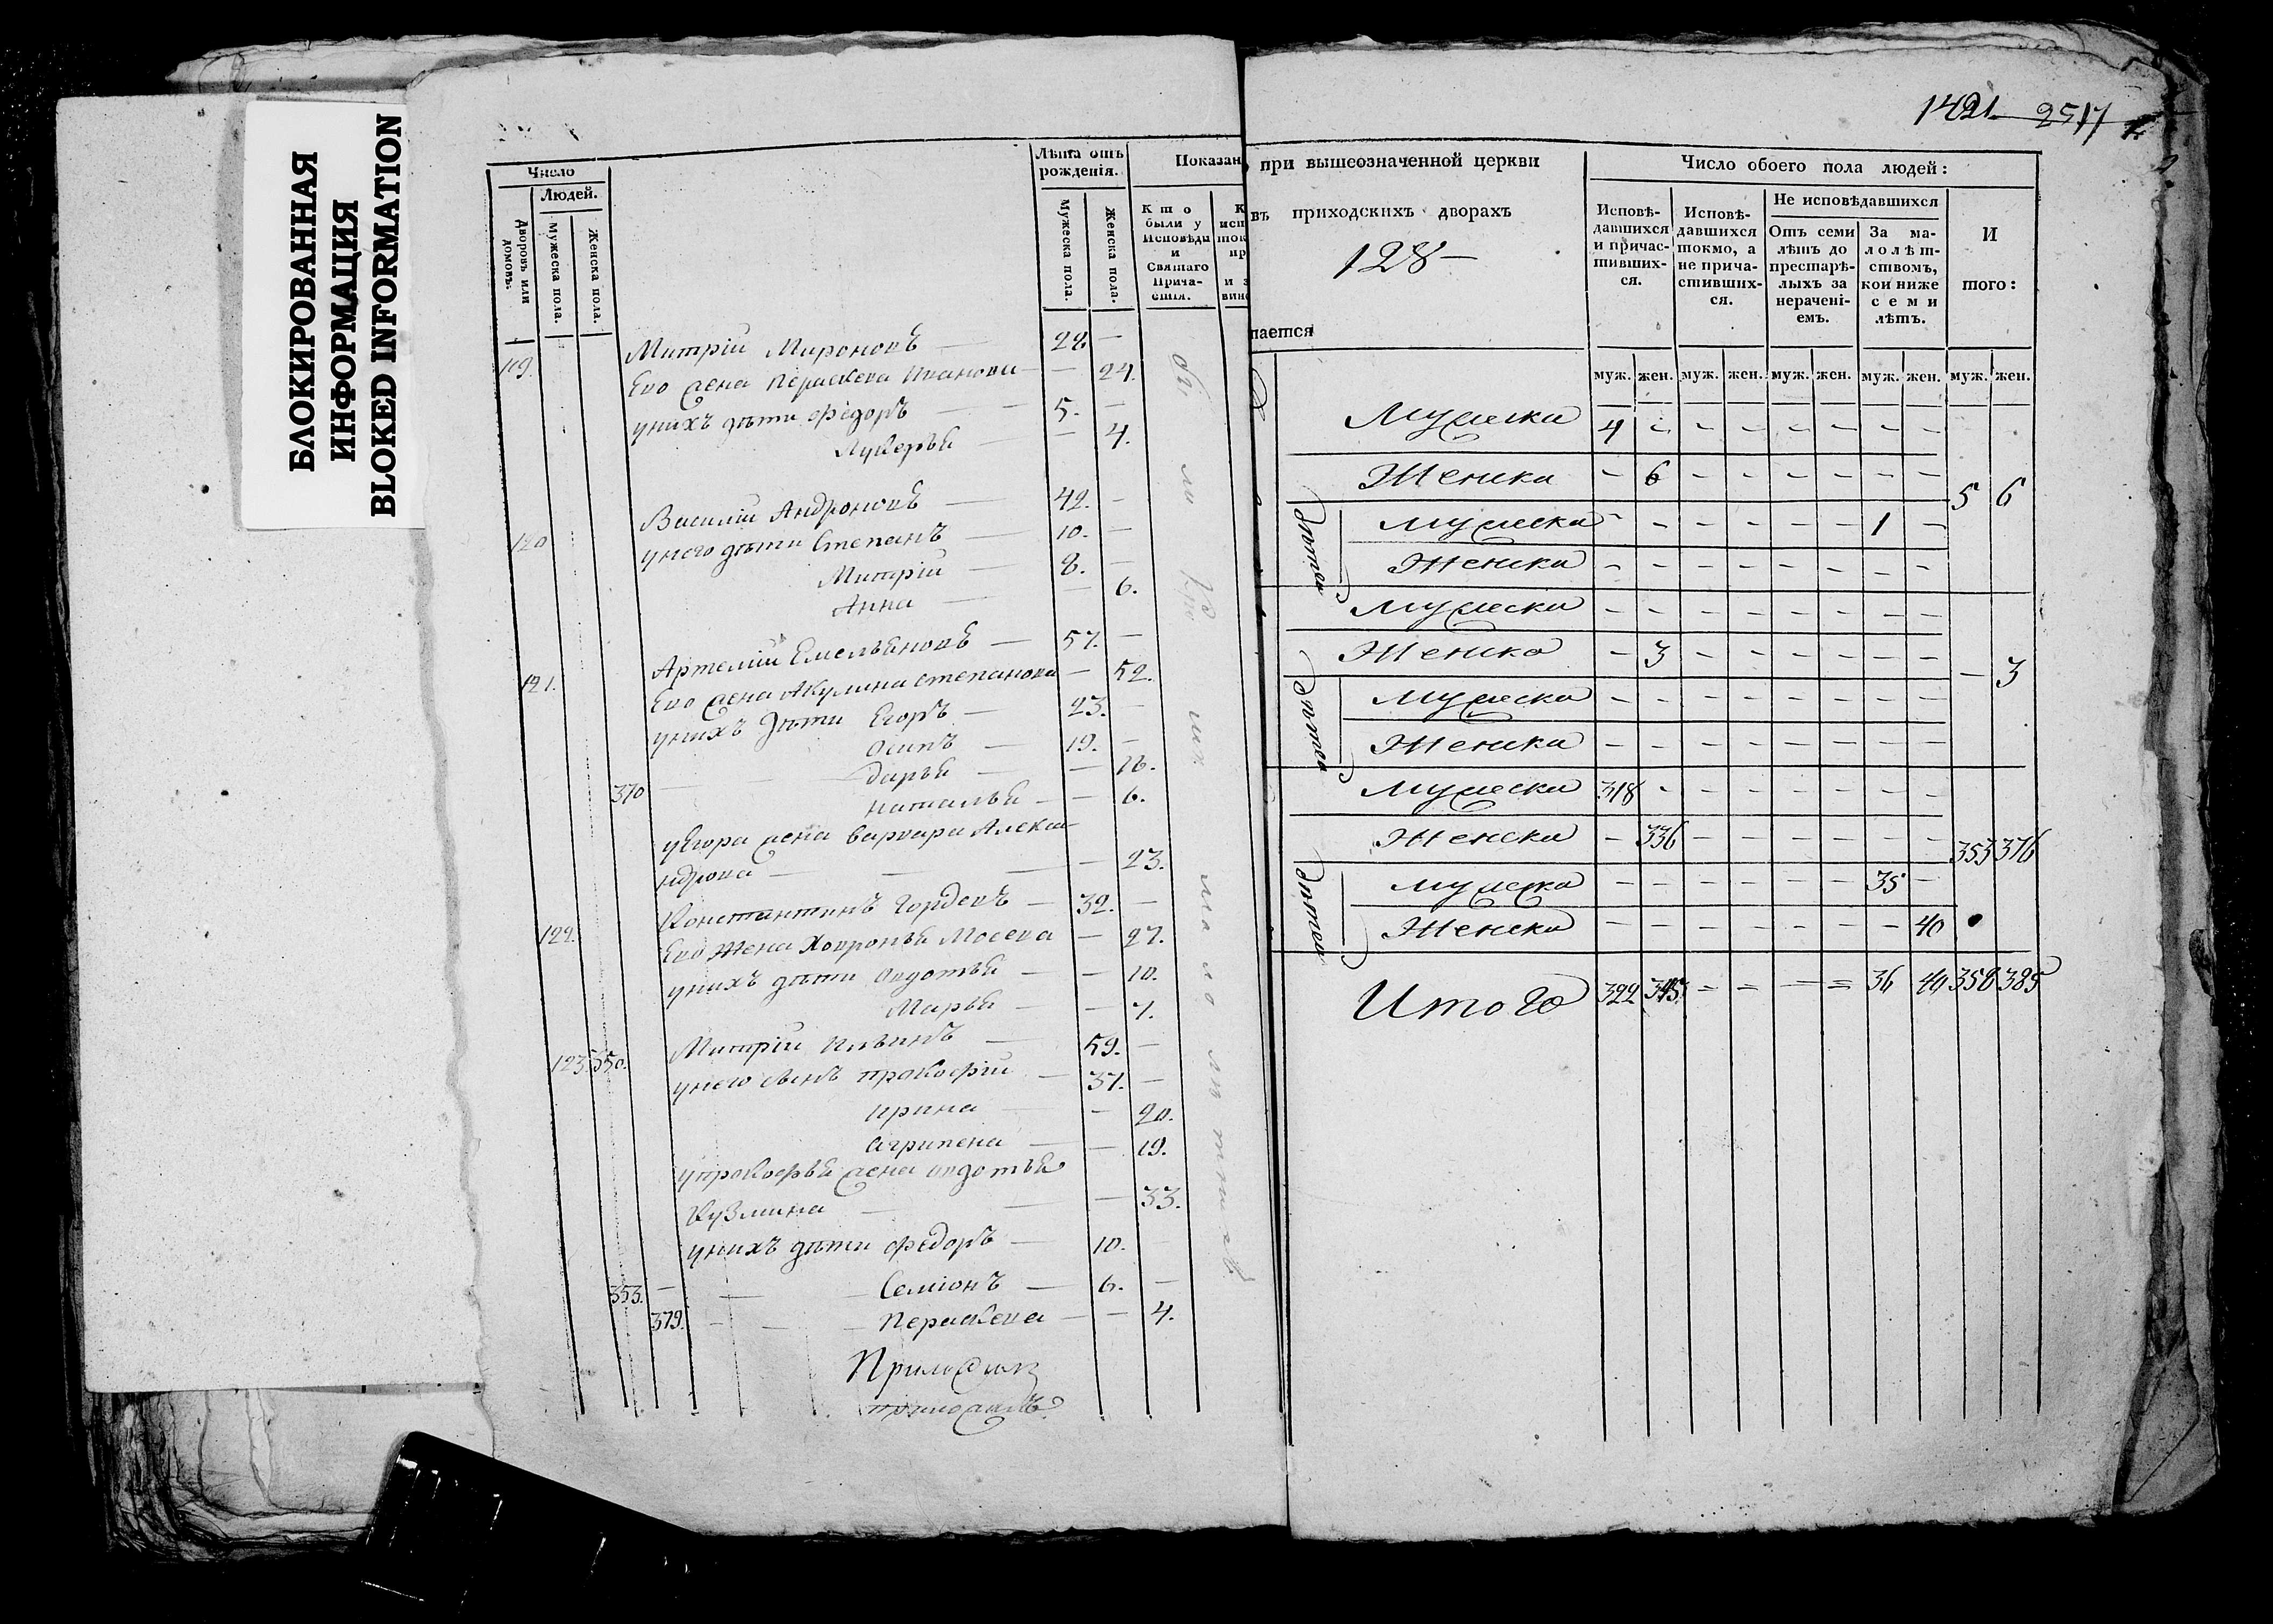 БЛОКИРОВАННАЯ
ИНФОРМАЦИЯ
BLOKED INFORMATION
Число
Людей.
Дворовъ или домовъ.
Мужеска пола.
Женска пола.
Лѣта отъ
рожденія.
Мужеска пола.
Женска пола.
Показан
Кто
были у
Исповѣди
и
Святаго
Прича-
стія.
119. Митрій Мироновъ — 28 —
Ево жена Пераскева Иванова — 24.
у нихъ дѣти Федоръ — 5. —
Лукерья — 4.
120 Василій Андроновъ — 42. —
у него дѣти Степанъ — 10. —
Митрій — 8. —
Анна — 6.
121. Артемій Емельяновъ — 57. —
Ево жена Акулина Степанова — 52.
у нихъ дѣти Егоръ — 23. —
Осипъ — 19. —
Дарья — 16.
370 Наталья — 6.
у Егора жена Варвара Алекса-
ндрова — 23.
122. Константинъ Гордевъ — 32. —
Ево жена Ховронья Мосева — 27.
у нихъ дѣти Овдотья — 10.
Марья — 7.
123. 350. Митрій Ильинъ — 59. —
у него сынъ Прокофій — 37. —
Ирина — 20.
Агрипена — 19.
у Прокофья жена Овдотья
Кузмина — 33.
у нихъ дѣти Федоръ — 10. —
353. Семіонъ — 6. —
379. Пераскева — 4.
1421. 2517
при вышеозначенной церкви
въ приходскихъ дворахъ
128 —
пается
Число обоего пола людей:
Исповѣ-
давшихся
и причас-
тивших-
ся.
Исповѣ-
давшихся
токмо, а
не прича-
стивших-
ся.
Не исповѣдавшихся
Отъ семи
лѣтъ до
престарѣ-
лыхъ за
нерачені-
емъ.
За ма-
лолѣт-
ствомъ,
кои ниже
семи
лѣтъ.
И
того:
муж. жен. муж. жен. муж. жен. муж. жен. муж. жен.
Мужеска 4 — — — — — — —
Женска — 6 — — — — — — 5 6
дѣтей
Мужеска — — — — — — 1 —
Женска — — — — — — — —
Мужеска — — — — — — — —
Женска — 3 — — — — — — — 3
дѣтей
Мужеска — — — — — — — —
Женска — — — — — — — —
Мужеска 318 — — — — — — —
Женска — 336 — — — — — — 353 376
дѣтей
Мужеска — — — — — — 35 —
Женска — — — — — — — 40
Итого 322 345 — — — — 36 40 358 385